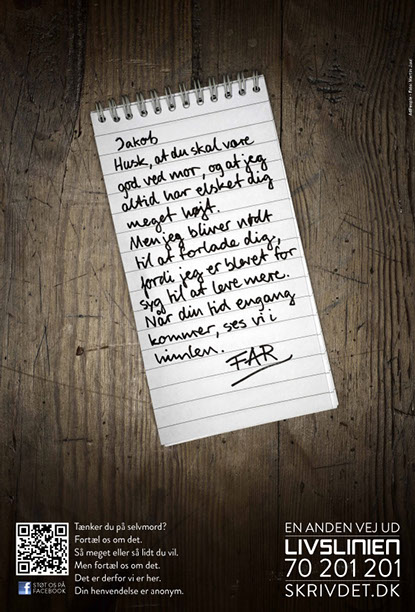 Jakob
Husk, at du skal være
god ved mor, og at jeg
altid har elsket dig
meget højt.
Men jeg bliver nødt
til at forlade dig,
fordi jeg er blevet for
syg til at leve mere.
Når din tid engang
kommer, ses vi i
himlen.
FAR
Tænker du på selvmord?
Fortæl os om det.
Så meget eller så lidt du vil.
Men fortæl os om det.
Det er derfor vi er her.
Din henvendelse er anonym.
STØT OS PÅ
FACEBOOK
EN ANDEN VEJ UD
LIVSLINIEN
70 201 201
SKRIVDET.DK